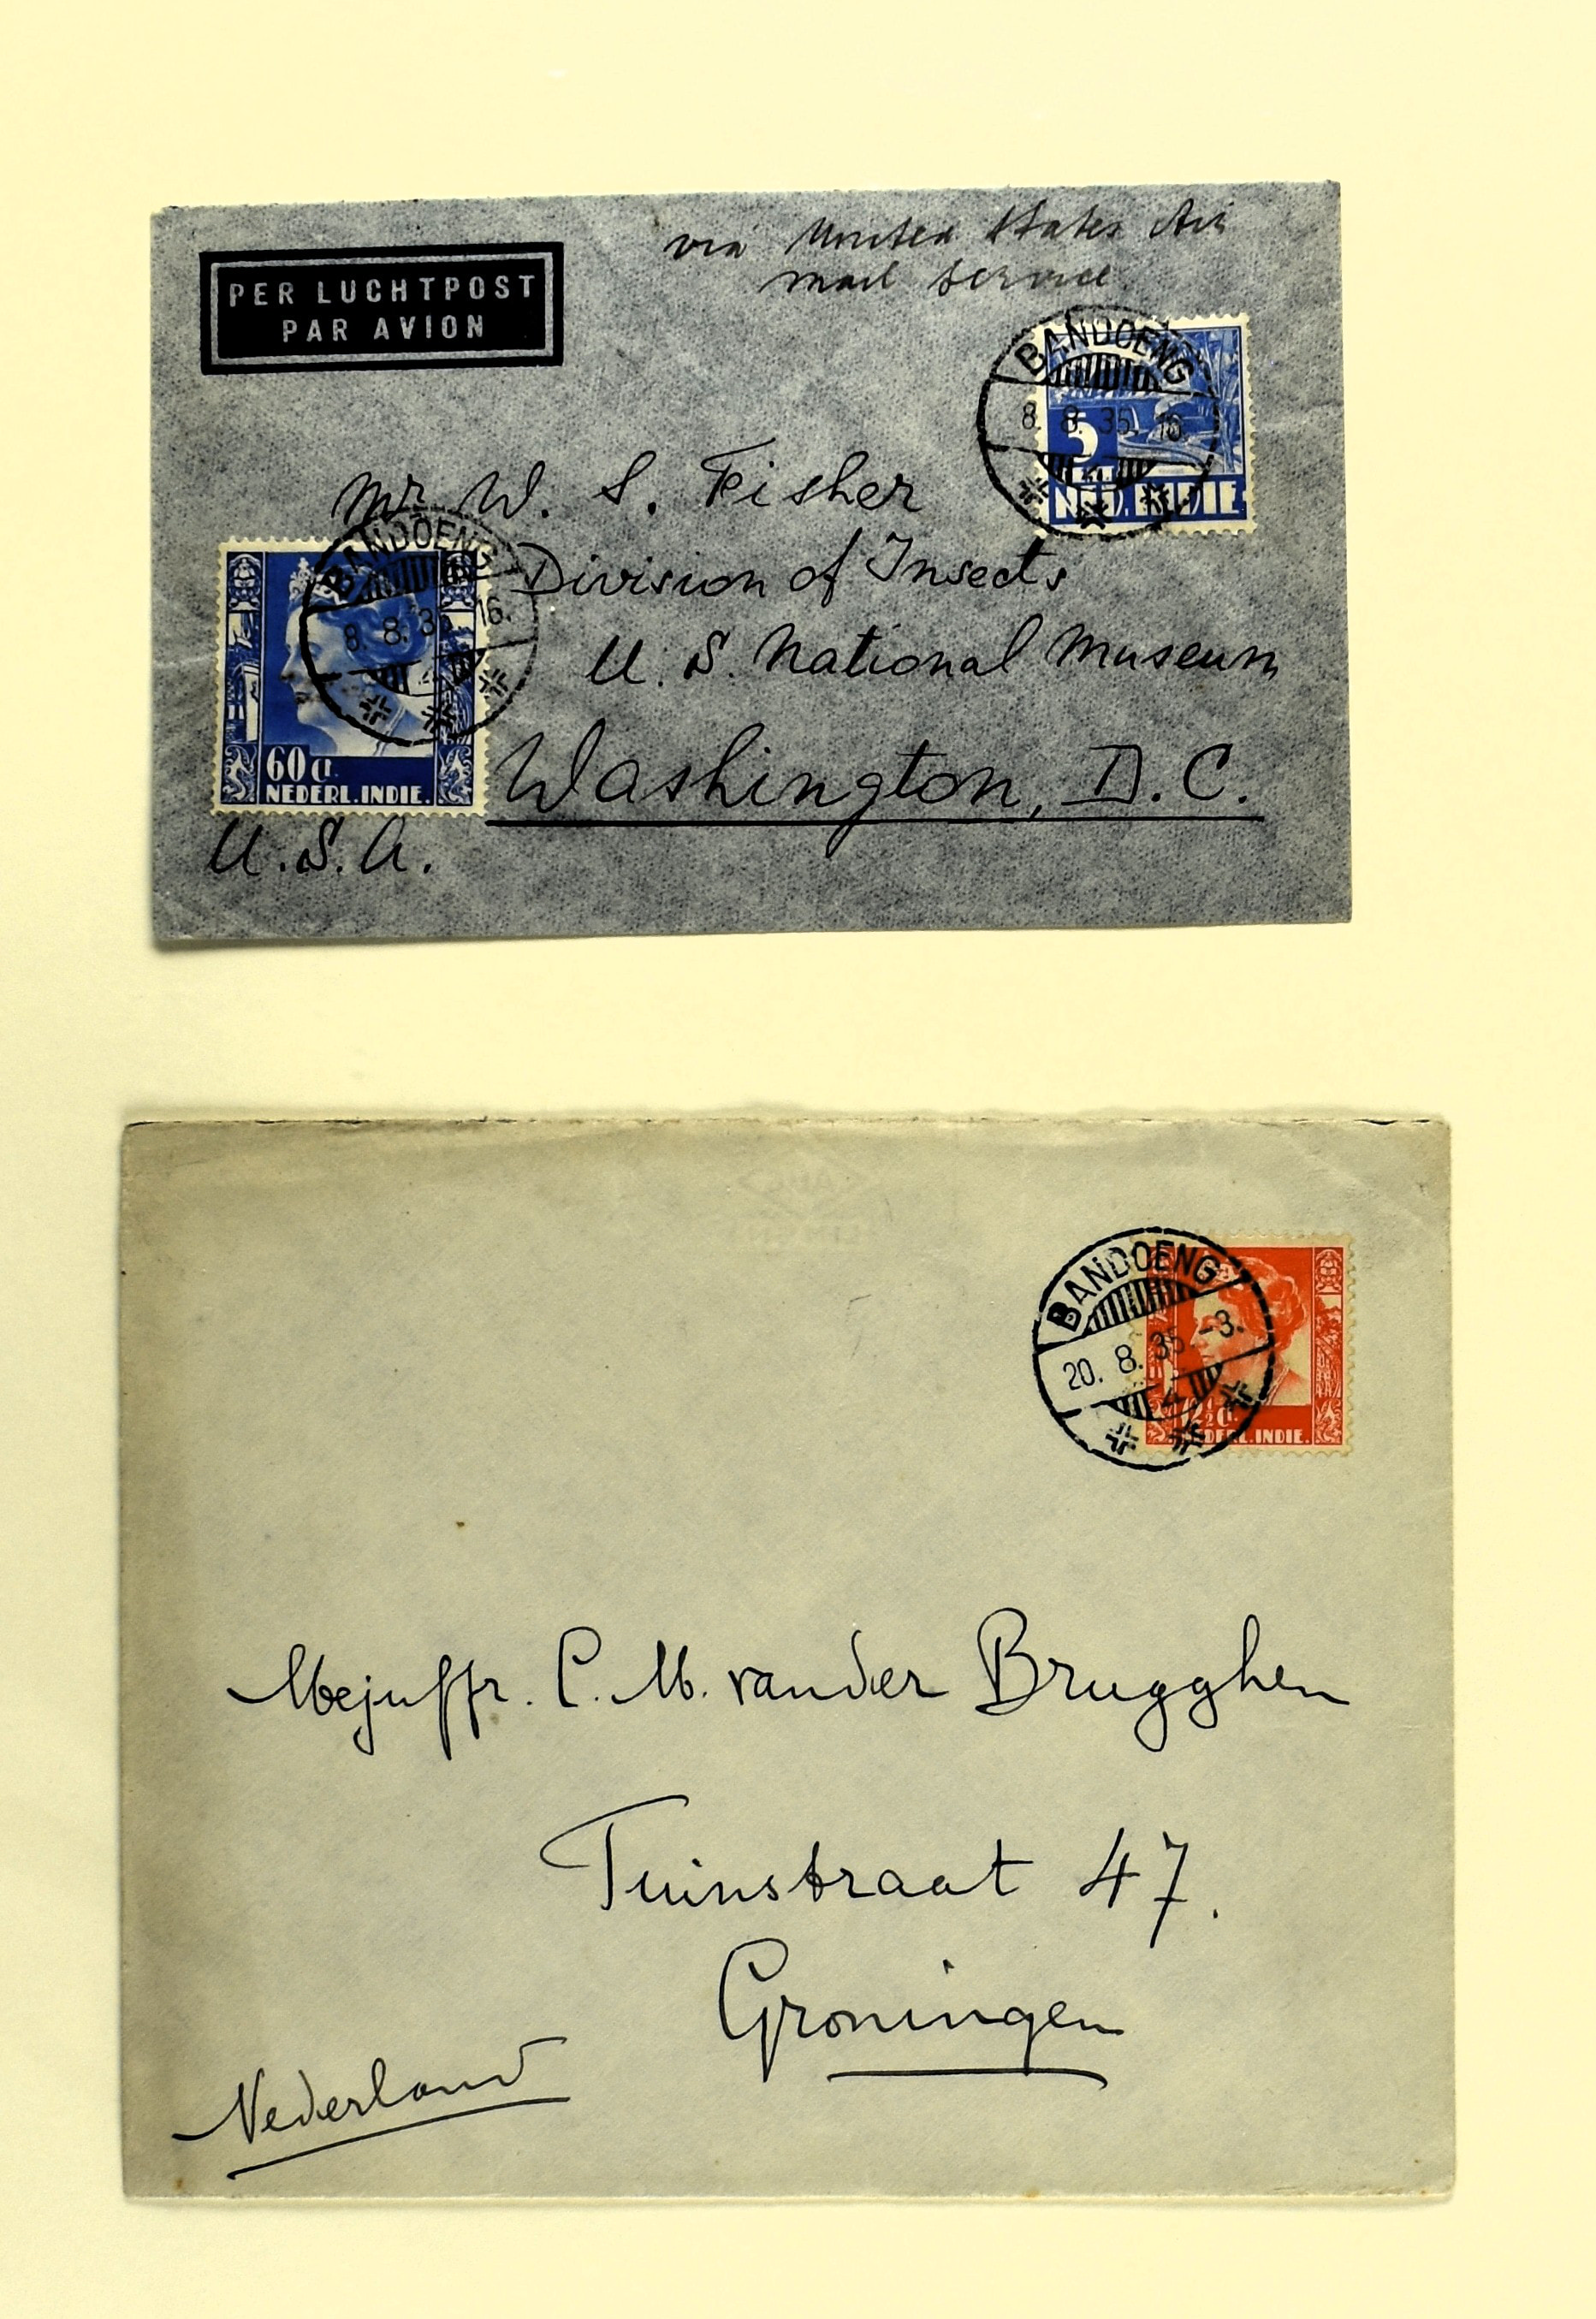 via United States Air
mail service.
PER LUCHTPOST
PAR AVION
BANDOENG
8. 8. 35. 16.
4
5
NED. INDIE
Mr. W. S. Fisher
BANDOENG
8. 8. 35. 16.
Division of Insects
U. S. National Museum
60 ct.
NEDERL. INDIE.
Washington, D.C.
U.S.A.
BANDOENG
20. 8. 35. -3.
4
12½ ct.
NEDERL. INDIE.
Mejuffr. C. M. van der Brugghen
Tuinstraat 47.
Groningen
Nederland